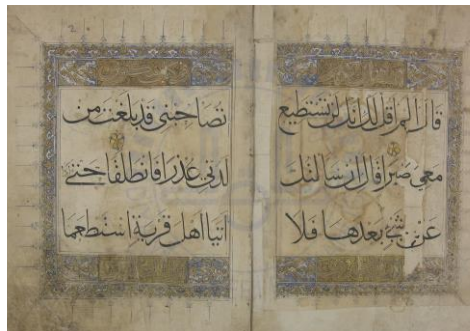 قال الم اقل لك انك لن تستطيع
معى صبرا قال ان سالتك
عن شئ بعدها فلا
تصاحبنى قد بلغت من
لدنى عذرا فانطلقا حتى
اتيا اهل قرية استطعما